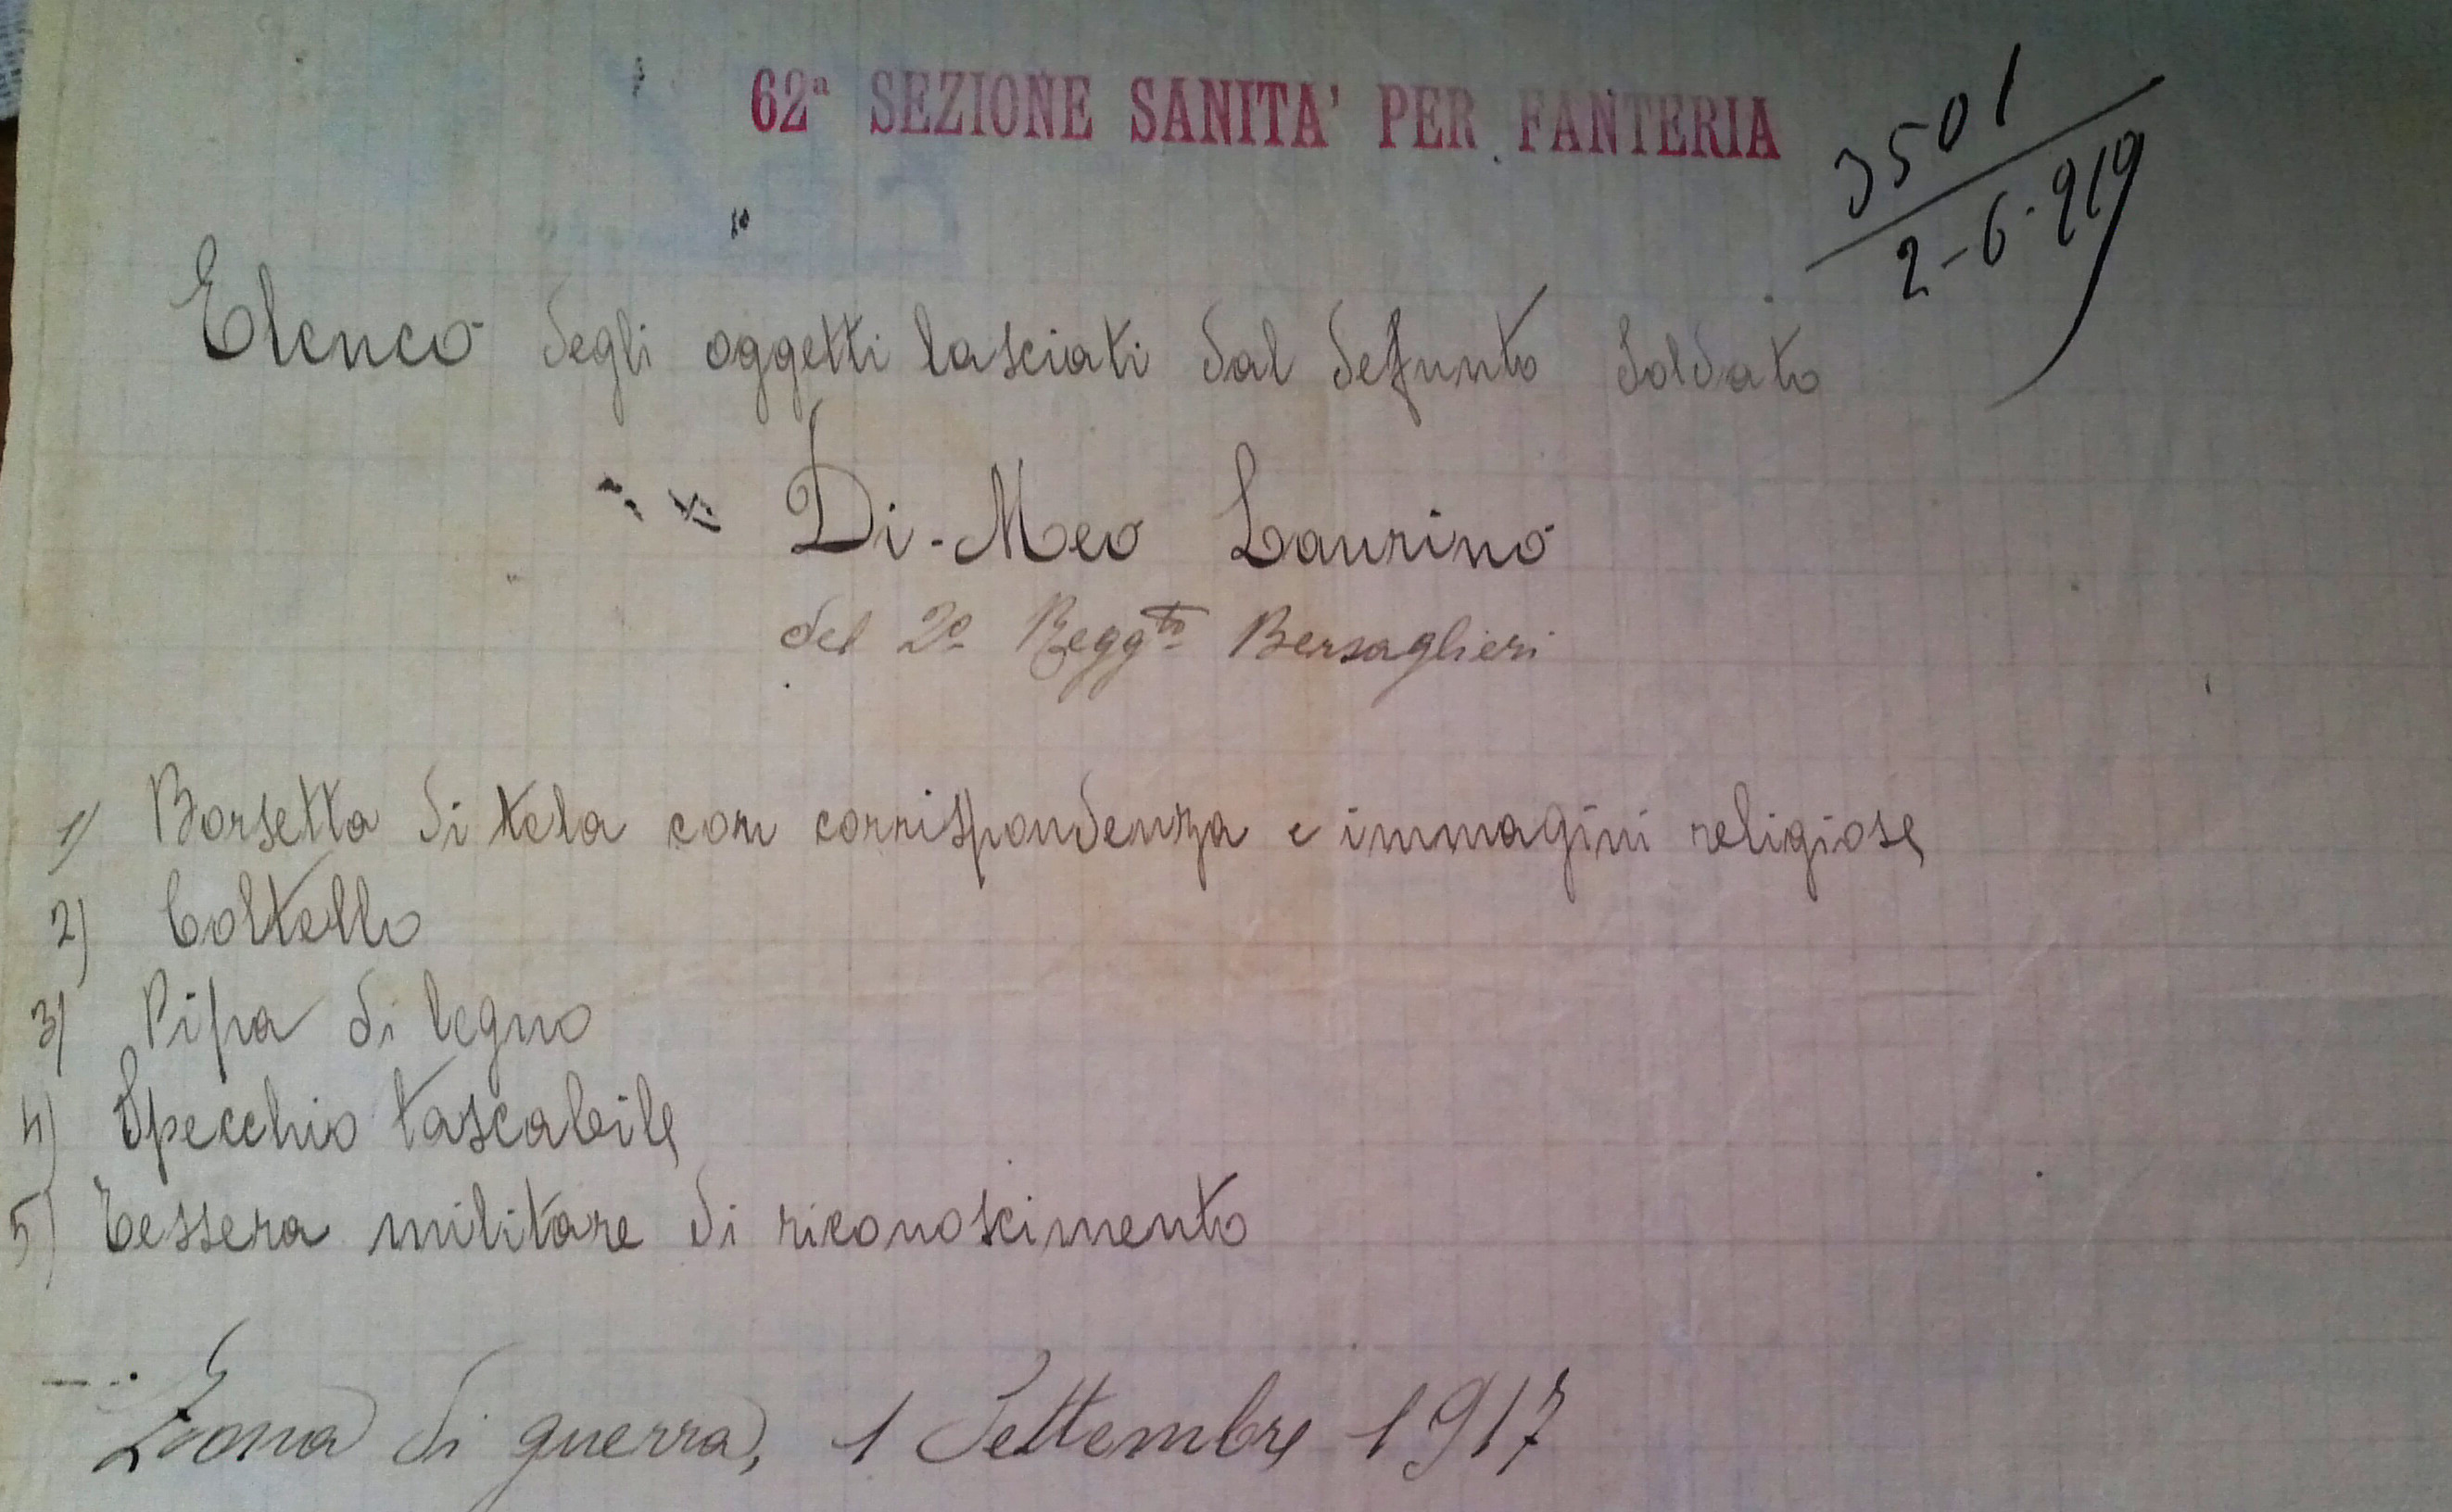 62ª SEZIONE SANITA' PER FANTERIA
3501
2-6-919
Elenco degli oggetti lasciati dal defunto soldato
Di-Meo Laurino
del 2º Reggto Bersaglieri
1) Borsetta di tela con corrispondenza e immagini religiose
2) Coltello
3) Pipa di legno
4) Specchio tascabile
5) Tessera militare di riconoscimento
Zona di guerra, 1 Settembre 1917